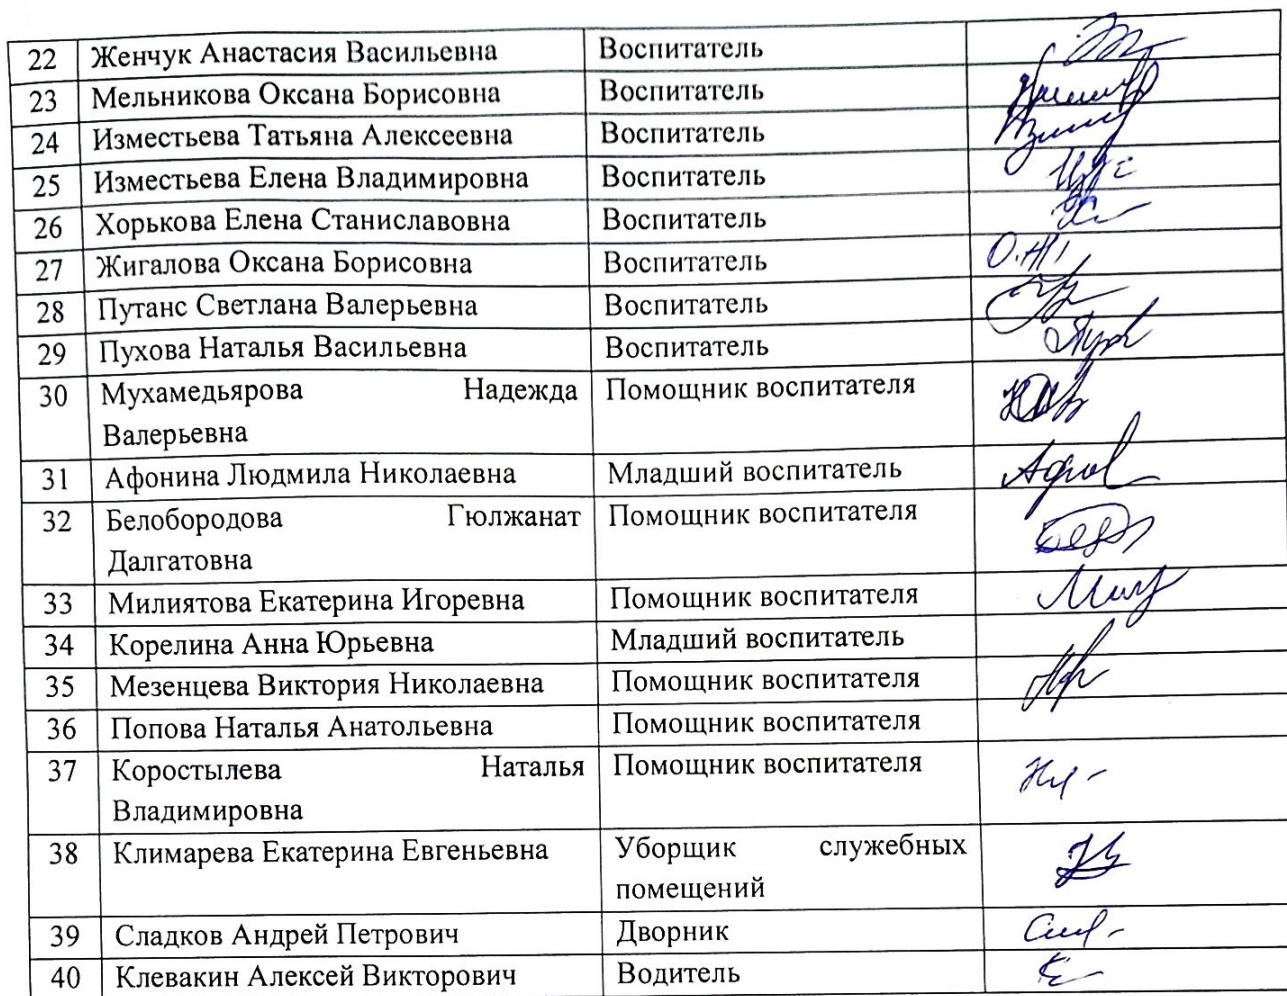 22 Женчук Анастасия Васильевна Воспитатель
23 Мельникова Оксана Борисовна Воспитатель
24 Изместьева Татьяна Алексеевна Воспитатель
25 Изместьева Елена Владимировна Воспитатель
26 Хорькова Елена Станиславовна Воспитатель
27 Жигалова Оксана Борисовна Воспитатель
28 Путанс Светлана Валерьевна Воспитатель
29 Пухова Наталья Васильевна Воспитатель
30 Мухамедьярова Надежда Помощник воспитателя
Валерьевна
31 Афонина Людмила Николаевна Младший воспитатель
32 Белобородова Гюлжанат Помощник воспитателя
Далгатовна
33 Милиятова Екатерина Игоревна Помощник воспитателя
34 Корелина Анна Юрьевна Младший воспитатель
35 Мезенцева Виктория Николаевна Помощник воспитателя
36 Попова Наталья Анатольевна Помощник воспитателя
37 Коростылева Наталья Помощник воспитателя
Владимировна
38 Климарева Екатерина Евгеньевна Уборщик служебных
помещений
39 Сладков Андрей Петрович Дворник
40 Клевакин Алексей Викторович Водитель